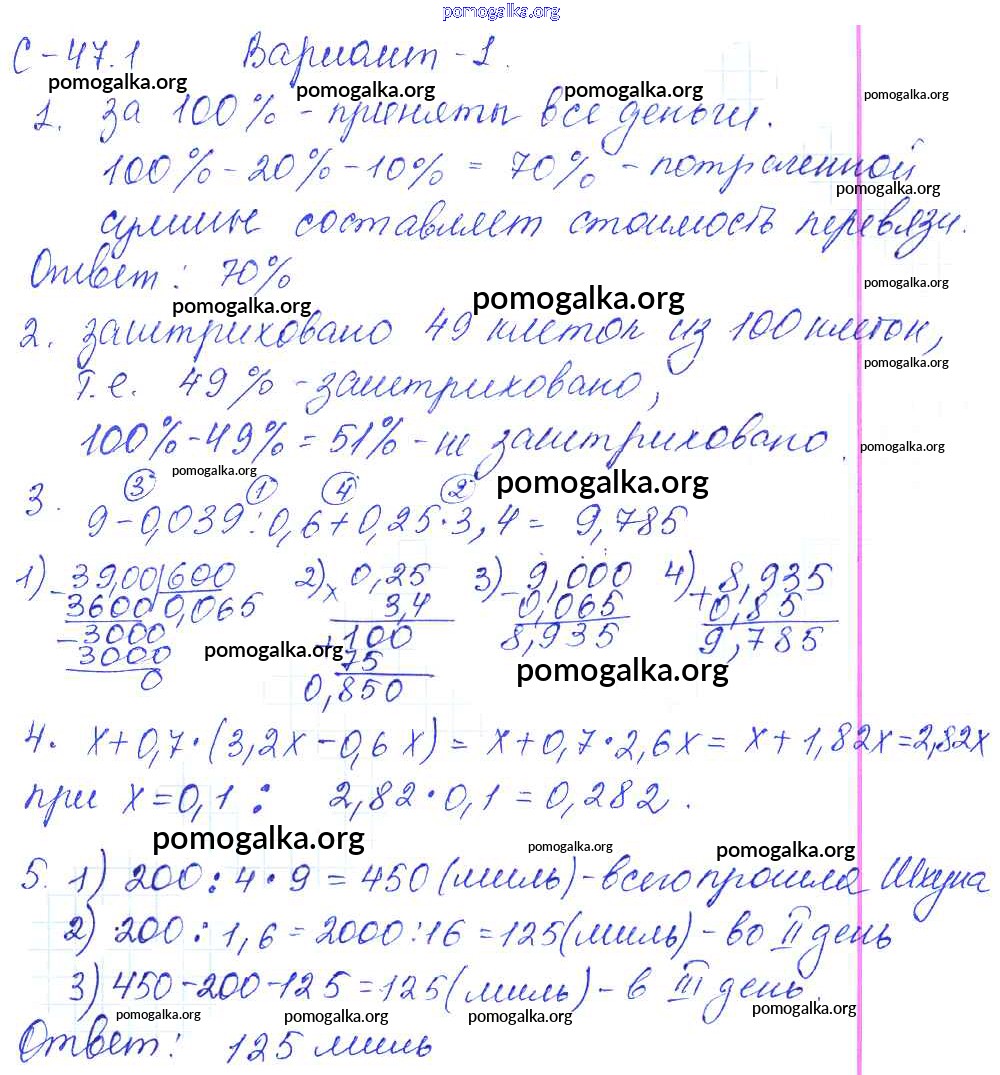 pomogalka.org
С-47.1 Вариант-1.
pomogalka.org pomogalka.org pomogalka.org pomogalka.org
1. за 100% - приняты все деньги.
100% - 20% - 10% = 70% - потраченной
pomogalka.org
суммы составляет стоимость перевязи.
Ответ: 70%
pomogalka.org
pomogalka.org pomogalka.org
2. заштриховано 49 клеток из 100 клеток,
pomogalka.org
т.е. 49% - заштриховано,
100% - 49% = 51% - не заштриховано.
pomogalka.org
pomogalka.org pomogalka.org
3 1 4 2
3. 9 - 0,039 : 0,6 + 0,25 · 3,4 = 9,785
1) 39,00 600 2) 0,25 3) 9,000 4) 8,935
- 3600 0,065 × 3,4 - 0,065 + 0,85
- 3000 + 100 8,935 9,785
3000 75
0 0,850
pomogalka.org pomogalka.org
4. х + 0,7 · (3,2х - 0,6х) = х + 0,7 · 2,6х = х + 1,82х = 2,82х
при х = 0,1 : 2,82 · 0,1 = 0,282.
pomogalka.org pomogalka.org pomogalka.org
5. 1) 200 : 4 · 9 = 450 (миль) - всего прошла Шхуна
2) 200 : 1,6 = 2000 : 16 = 125 (миль) - во II день
3) 450 - 200 - 125 = 125 (миль) - в III день.
pomogalka.org pomogalka.org pomogalka.org pomogalka.org
Ответ: 125 миль